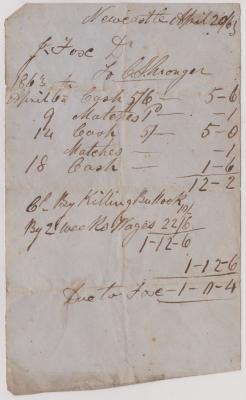 Newcastle April 20/63
J. Fox Dr
To C. Shronger
1863
April 6th Cash 5/6 — 5-6
9 Matches 1d — -1
14 Cash 5/- — 5-0
Matches — -1
18 Cash — 1-6
12-2
Cr By Killing Bullock 10/-
By 2 weeks Wages 22/6
1-12-6
1-12-6
Due to Fox — 1-0-4